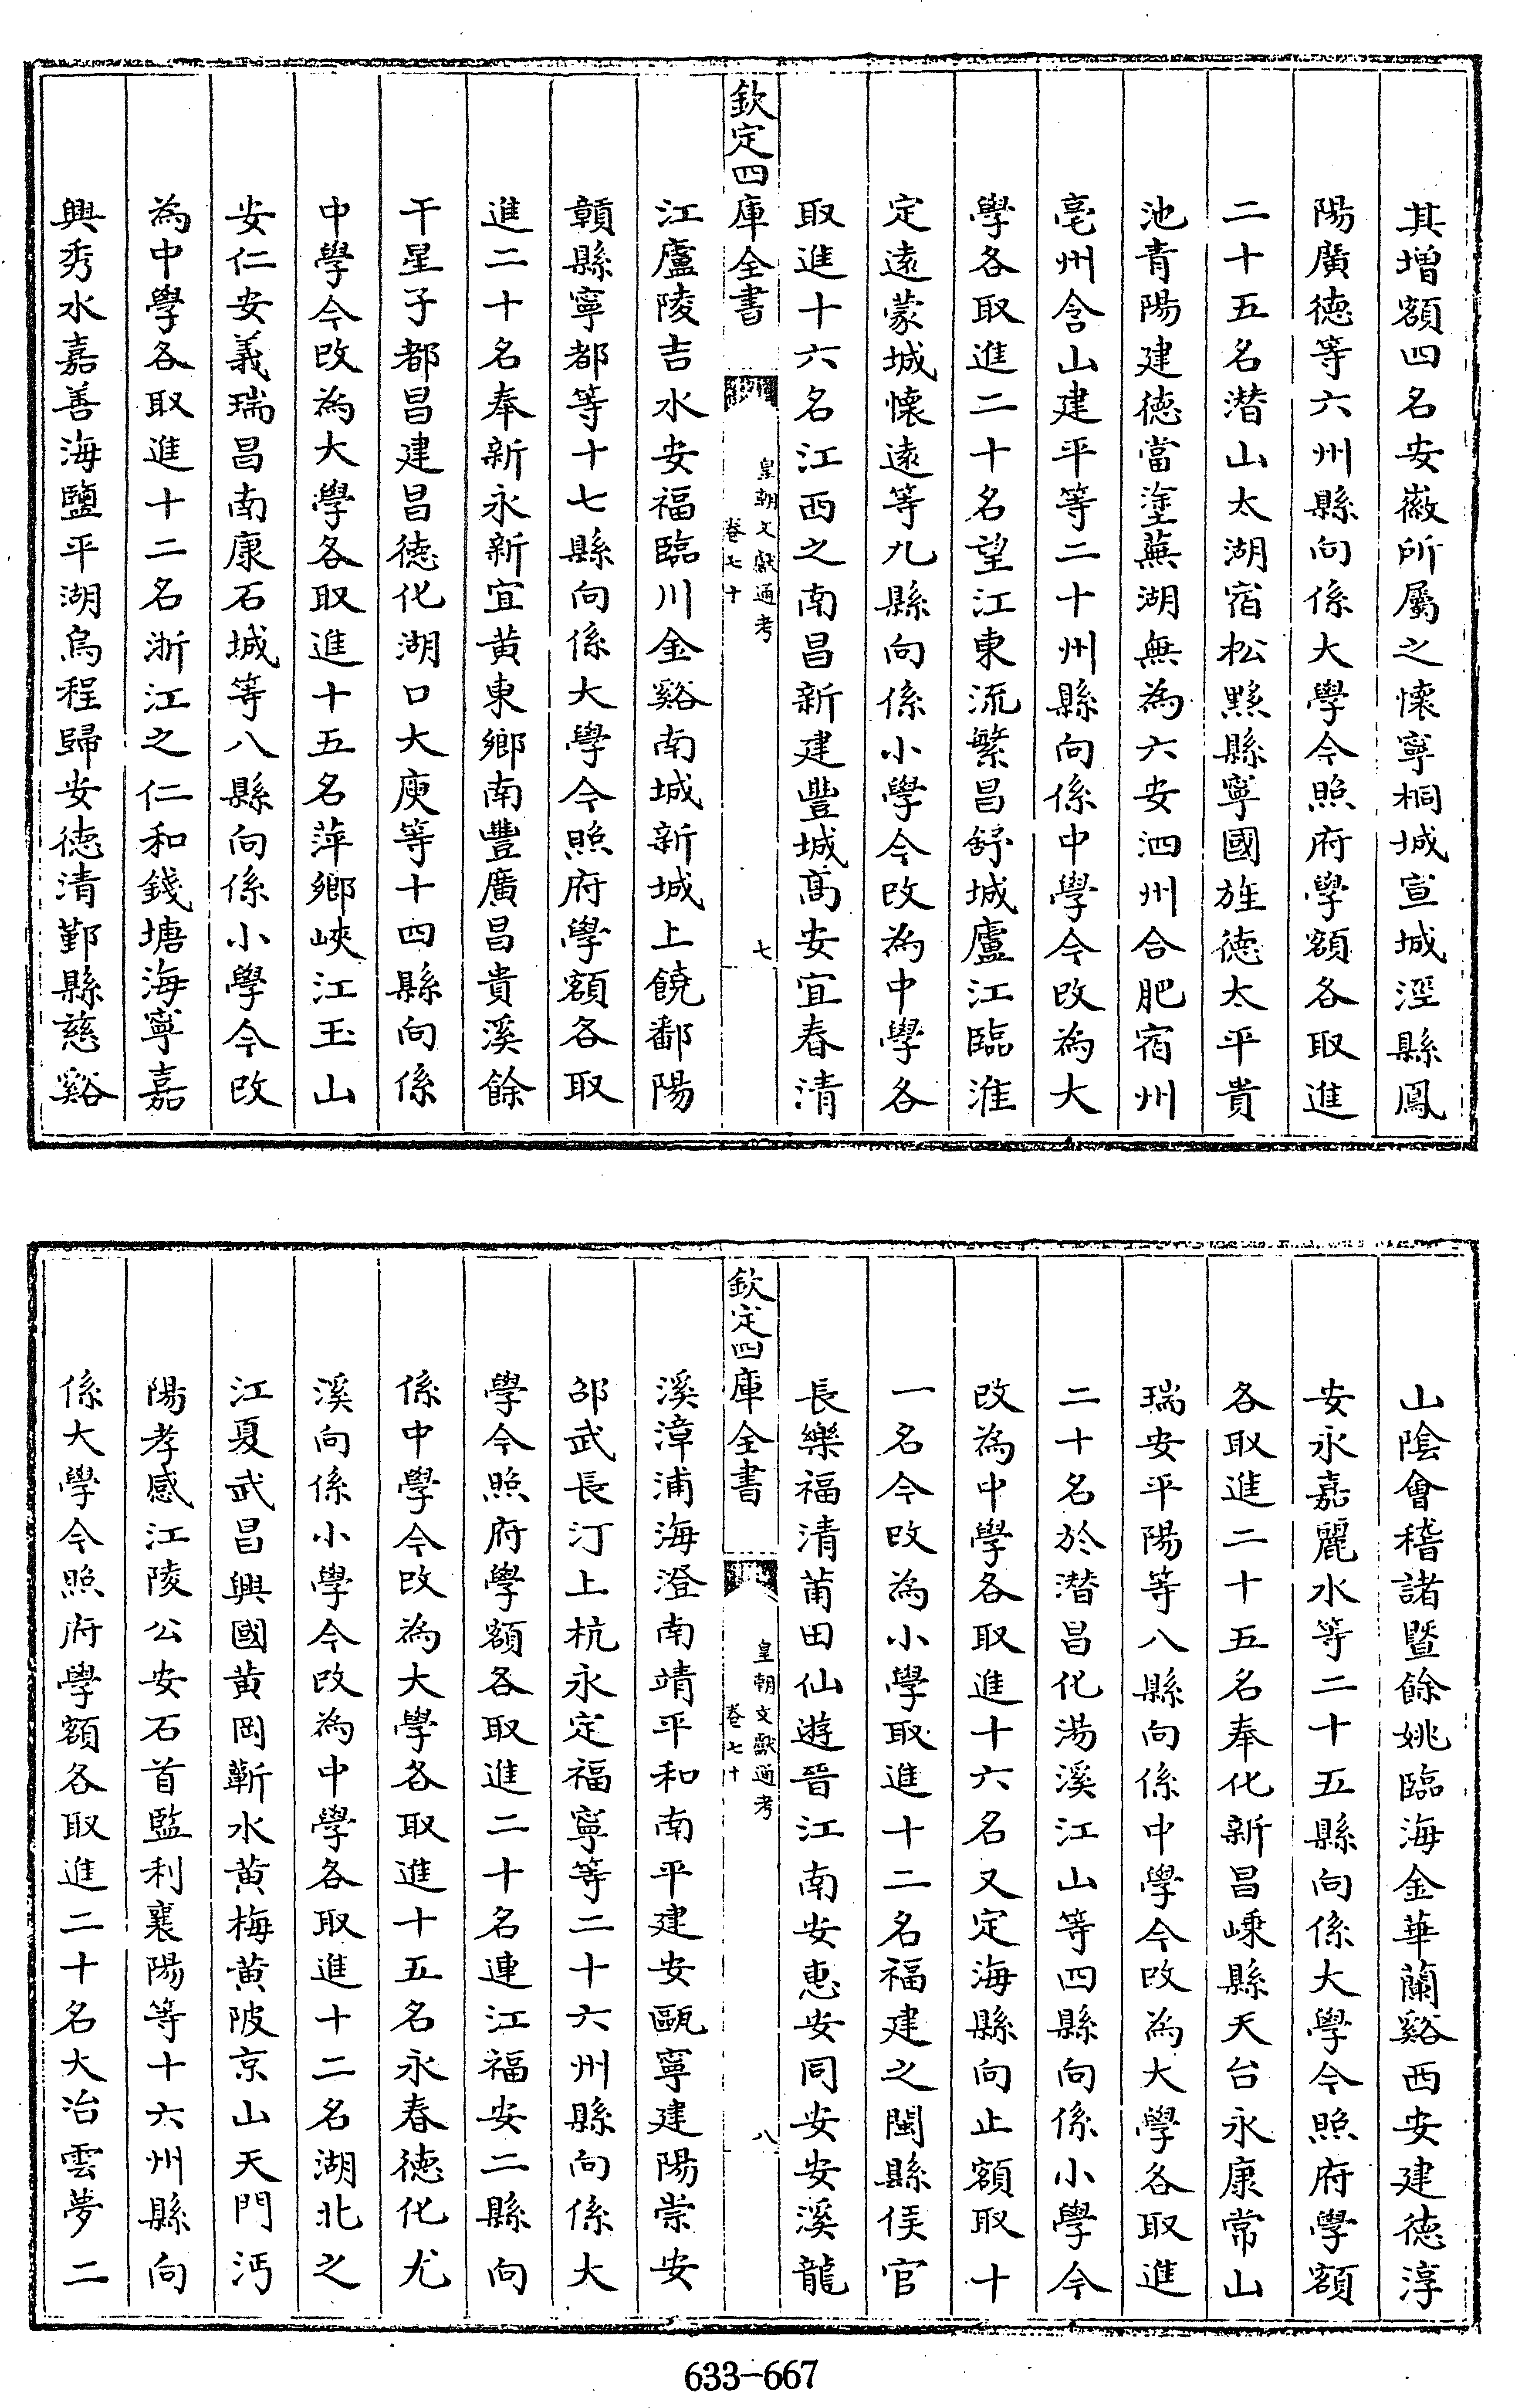 其增額四名安徽所屬之懷寧桐城宣城涇縣鳳
陽廣徳等六州縣向係大學今照府學額各取進
二十五名潛山太湖宿松黟縣寧國旌徳太平貴
池青陽建徳當塗蕪湖無為六安泗州合肥宿州
亳州含山建平等二十州縣向係中學今改為大
學各取進二十名望江東流繁昌舒城廬江臨淮
定逺蒙城懷逺等九縣向係小學今改為中學各
取進十六名江西之南昌新建豐城髙安宜春清
欽定四庫全書
皇朝文獻通考
卷七十
七
江廬陵吉水安福臨川金谿南城新城上饒鄱陽
贛縣寧都等十七縣向係大學今照府學額各取
進二十名奉新永新宜黄東鄉南豐廣昌貴溪餘
干星子都昌建昌徳化湖口大庾等十四縣向係
中學今改為大學各取進十五名萍鄉峽江玉山
安仁安義瑞昌南康石城等八縣向係小學今改
為中學各取進十二名浙江之仁和錢塘海寧嘉
興秀水嘉善海鹽平湖烏程歸安徳清鄞縣慈谿
山陰會稽諸暨餘姚臨海金華蘭谿西安建徳淳
安永嘉麗水等二十五縣向係大學今照府學額
各取進二十五名奉化新昌嵊縣天台永康常山
瑞安平陽等八縣向係中學今改為大學各取進
二十名於潛昌化湯溪江山等四縣向係小學今
改為中學各取進十六名又定海縣向止額取十
一名今改為小學取進十二名福建之閩縣侯官
長樂福清莆田仙遊晉江南安惠安同安安溪龍
欽定四庫全書
皇朝文獻通考
卷七十
八
溪漳浦海澄南靖平和南平建安甌寧建陽崇安
邵武長汀上杭永定福寧等二十六州縣向係大
學今照府學額各取進二十名連江福安二縣向
係中學今改為大學各取進十五名永春徳化尤
溪向係小學今改為中學各取進十二名湖北之
江夏武昌興國黄岡蘄水黄梅黄陂京山天門沔
陽孝感江陵公安石首監利襄陽等十六州縣向
係大學今照府學額各取進二十名大冶雲夢二
633-667